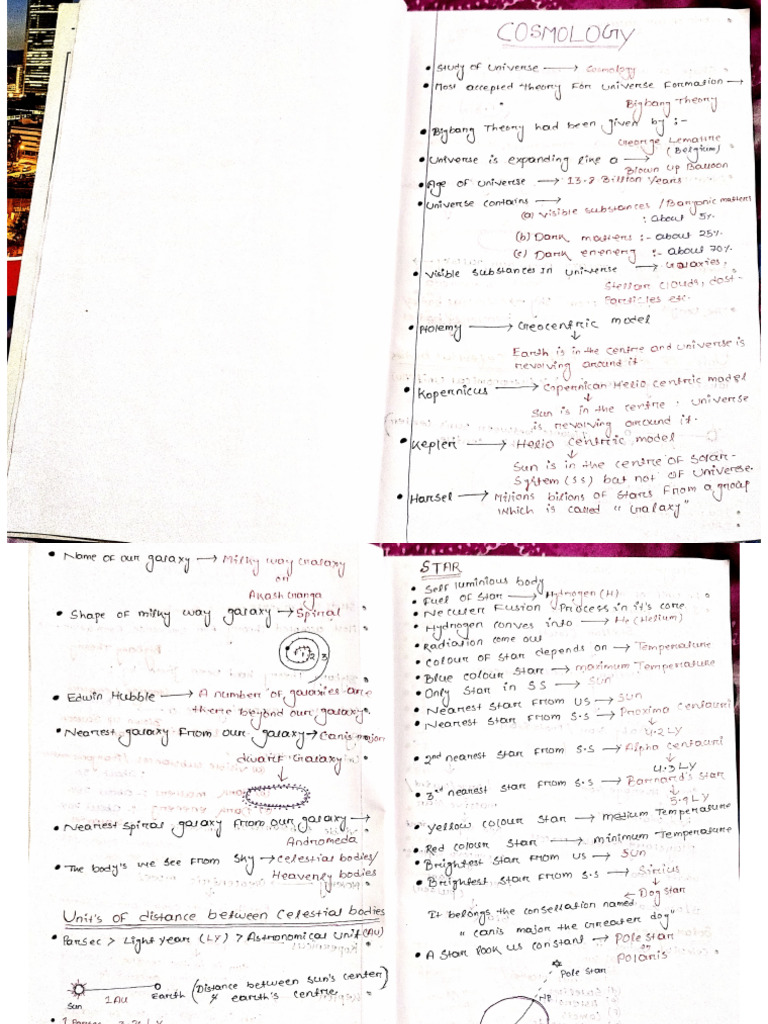 COSMOLOGY
• Study of Universe → Cosmology
• Most accepted theory For universe Formation →
Bigbang Theory
• Bigbang Theory had been given by :-
George Lemaitre
(Belgium)
• Universe is expanding like a →
Blown up Balloon
• Age of universe → 13.8 Billion Years
• Universe contains →
(a) Visible substances / Baryonic matters
: About 5%
(b) Dark matters :- about 25%
(c) Dark enenerg :- about 70%
• Visible Substances In universe → Galaxies,
Stellar Clouds, dost-
Particles etc.
• Ptolemy → Geocentric model
↓
Earth is in the centre and universe is
revolving around it.
• Kopernicus → Copernican Helio centric model
↓
Sun is in the centre . Universe
is revolving around it.
• Kepler → Helio centric model
↓
Sun is in the centre of Solar-
System (SS) but not of universe.
• Harsel → Milions bilions of stars From a group
which is called "Galaxy"
• Name of our galaxy → Milky way Galaxy
or
Akash Ganga
• Shape of milky way galaxy → Spiral
1 2 3
• Edwin Hubble → A number of galaxies are
there beyond our galaxy.
• Nearest galaxy From our galaxy → Canis major
dwarf Galaxy
↓
• Nearest Spiral galaxy From our galaxy →
Andromeda
• The body's we see From Sky → Celestial bodies/
Heavenly bodies
Unit's of distance between Celestial bodies
• Parsec > Light year (LY) > Astronomical unit (AU)
Sun 1 AU Earth (Distance between sun's center
& earth's centre)
STAR
• Self luminious body
• Fuel of Star → Hydrogen (H)
• Neculer Fusion Process in it's core
• Hydrogen conves into → He (Helium)
• Radiation come out
• Colour of Star depends on → Temperature
• Blue colour Star → maximum Temperature
• Only Star in SS → Sun
• Nearest Star From us → Sun
• Nearest Star From S.S → Proxima Centauri
↓
4.2 LY
• 2nd nearest Star From S.S → Alpha Centauri
↓
4.3 LY
• 3rd nearest Star From S.S → Barnard's Star
↓
5.9 LY
• Yellow colour Star → medium Temperature
• Red colour Star → minimum Temperature
• Brightest Star From us → Sun
• Brightest Star From S.S → Sirius
↓
← Dog Star
It belongs the consellation named
"canis major the Greater dog"
• A Star look us constant → Pole star
or
Polaris
Pole Star
NP